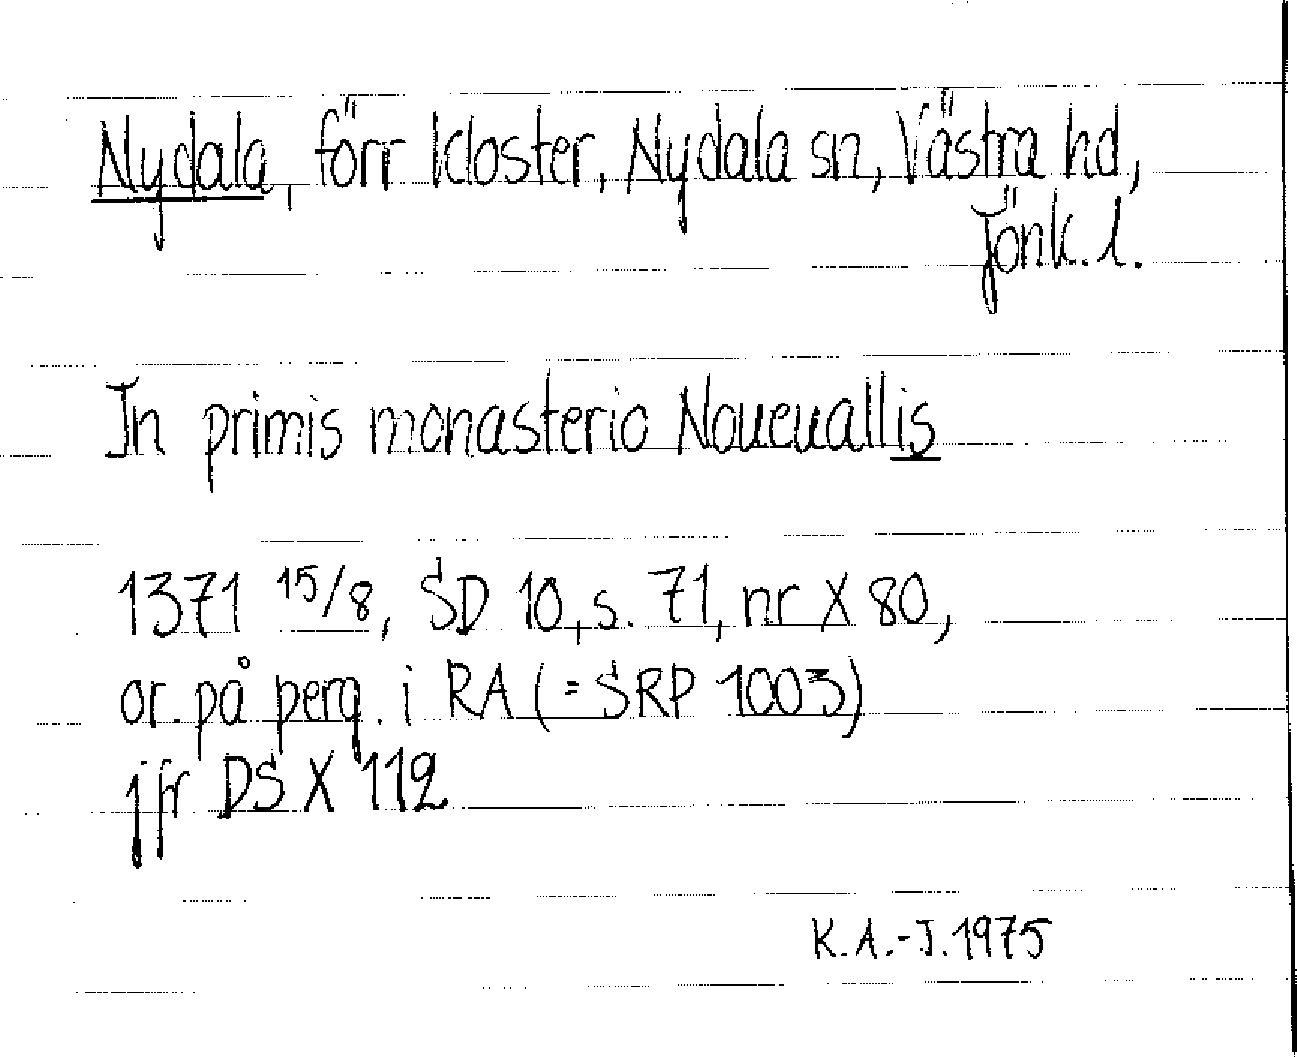 Nydala, förr kloster, Nydala sn, Västra hd,
Jönk. l.
In primis monasterio Noueuallis
1371 15/8, SD 10, s. 71, nr X 80,
or. på perg. i RA (= SRP 1003)
jfr DS X 112
K.A.-J. 1975